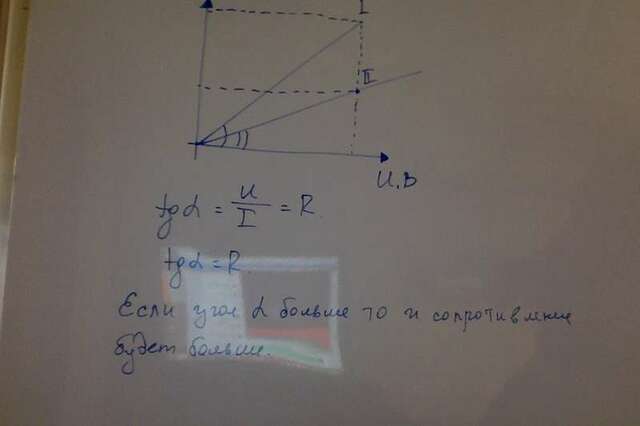 I
II
U,В
tgα = U/I = R
tgα = R
Если угол α больше то и сопротивление
будет больше.